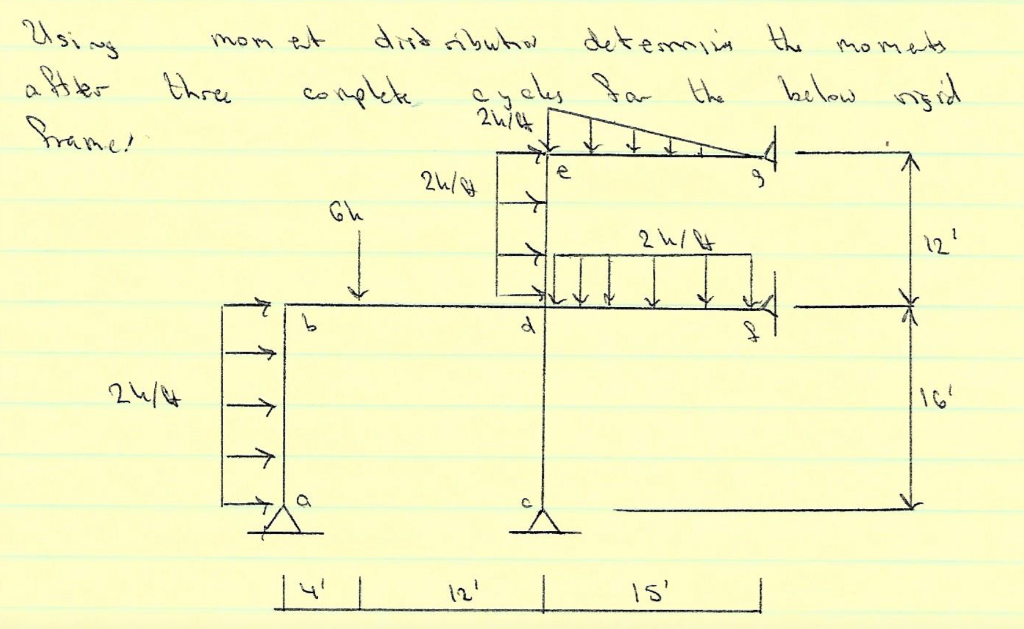 Using moment distribution determin the moments
after three complete cycles for the below rigid
frame!
2k/ft
e
g
2k/ft
6k
12'
2k/ft
b
d
f
2k/ft
16'
a
c
4'
12'
15'